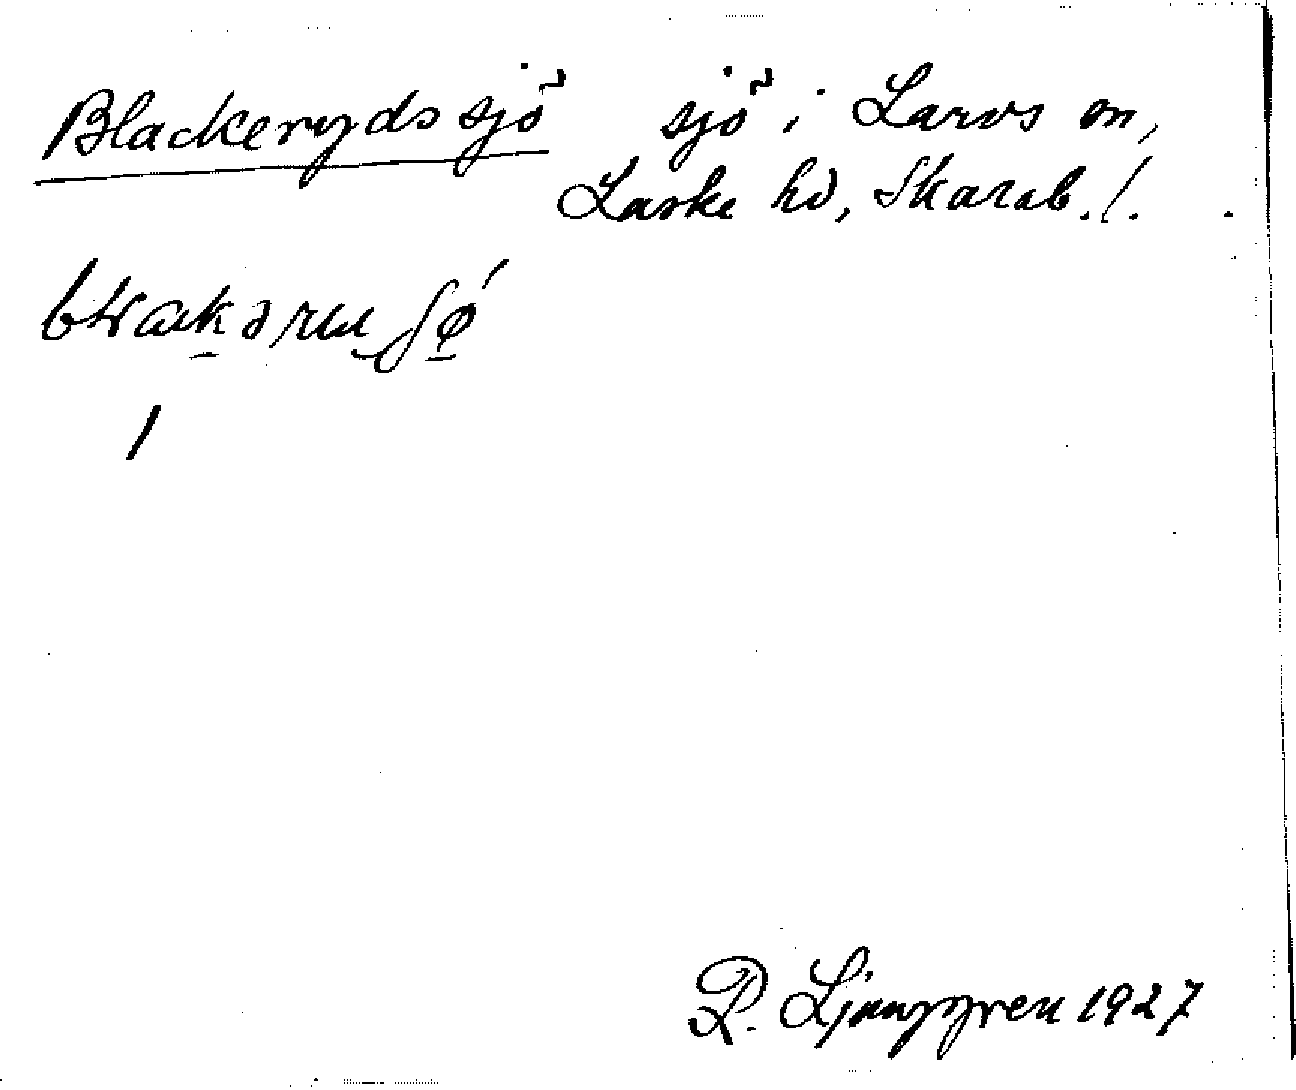 Blackeryds sjö sjö i Larvs sn,
Laske hd, Skarab. l.
R. Ljunggren 1927